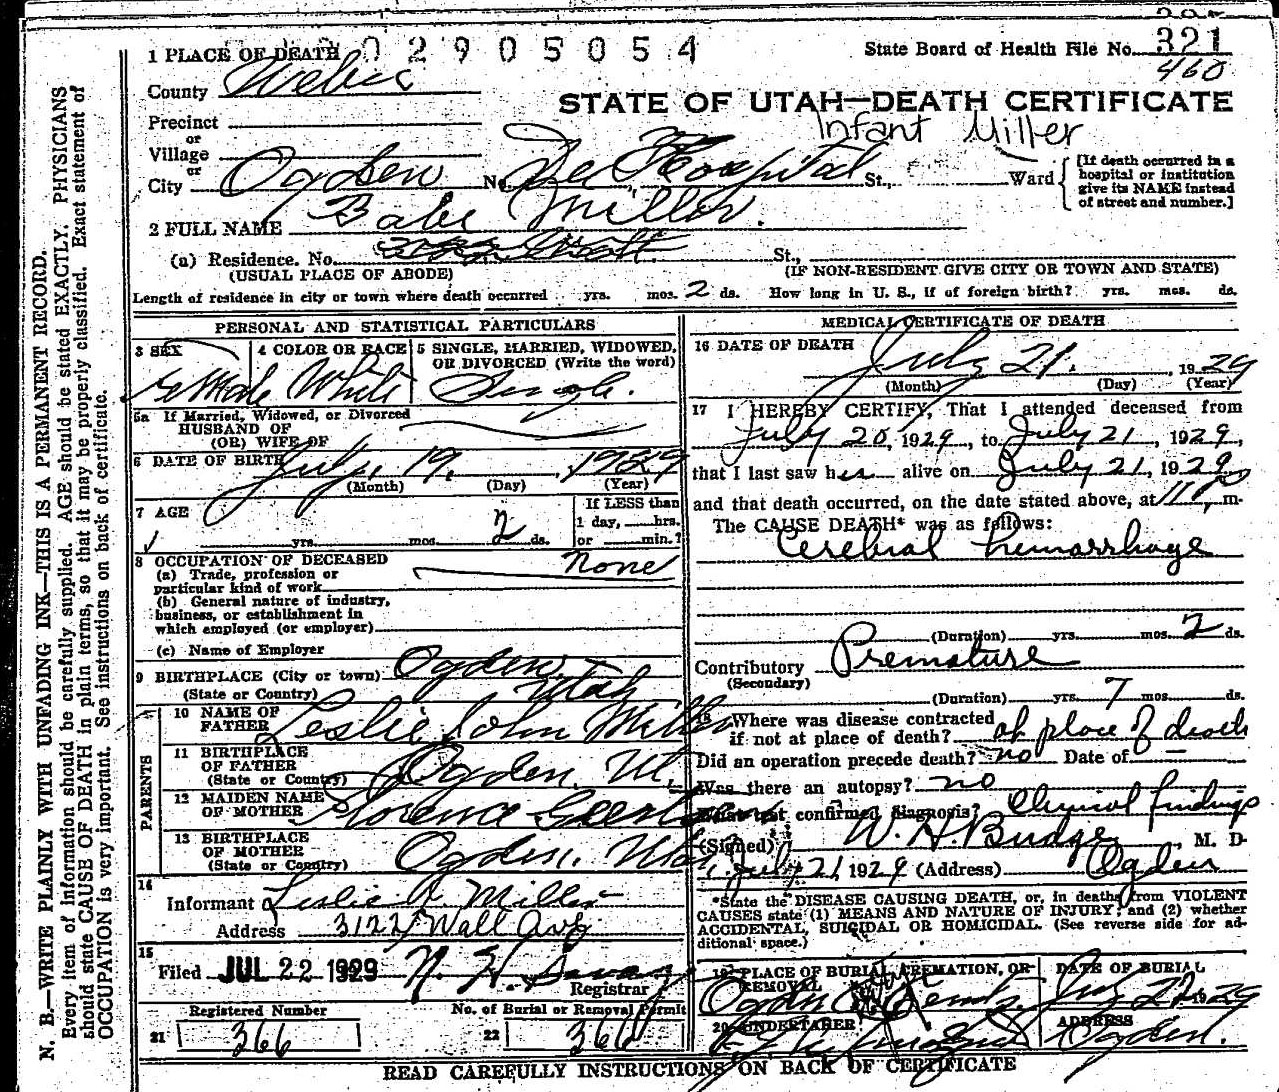 1 PLACE OF DEATH 02905054 State Board of Health File No. 321
County Weber 460
STATE OF UTAH—DEATH CERTIFICATE
Precinct Infant Miller
or
Village
or
City Ogden No. Dee Hospital St., Ward [If death occurred in a hospital or institution give its NAME instead of street and number.]
2 FULL NAME Babe Miller.
(a) Residence. No. St.,
(USUAL PLACE OF ABODE) (IF NON-RESIDENT GIVE CITY OR TOWN AND STATE)
Length of residence in city or town where death occurred yrs. mos. 2 ds. How long in U. S., if of foreign birth? yrs. mos. ds.
PERSONAL AND STATISTICAL PARTICULARS
3 SEX 4 COLOR OR RACE 5 SINGLE, MARRIED, WIDOWED,
OR DIVORCED (Write the word)
White Single.
5a If Married, Widowed, or Divorced
HUSBAND OF
(OR) WIFE OF
6 DATE OF BIRTH July 19. 1929
(Month) (Day) (Year)
7 AGE If LESS than
yrs. mos. 2 ds. 1 day, hrs.
or min.?
8 OCCUPATION OF DECEASED None
(a) Trade, profession or
particular kind of work
(b) General nature of industry,
business, or establishment in
which employed (or employer)
(c) Name of Employer
9 BIRTHPLACE (City or town) Ogden,
(State or Country) Utah
PARENTS
10 NAME OF
FATHER Leslie John Miller
11 BIRTHPLACE
OF FATHER
(State or Country) Ogden. Ut.
12 MAIDEN NAME
OF MOTHER Florence
13 BIRTHPLACE
OF MOTHER
(State or Country) Ogden. Utah.
14
Informant Leslie Miller
Address 3122 Wall Ave
15
Filed JUL 22 1929 N. H. Savage
Registrar
Registered Number No. of Burial or Removal Permit
21 366 22 366
MEDICAL CERTIFICATE OF DEATH
16 DATE OF DEATH July 21. , 1929
(Month) (Day) (Year)
17 I HEREBY CERTIFY, That I attended deceased from
July 20, 1929, to July 21, 1929,
that I last saw her alive on July 21, 1929
and that death occurred, on the date stated above, at 11 P m.
The CAUSE DEATH* was as follows:
Cerebral hemorrhage
(Duration) yrs. mos. 2 ds.
Contributory Premature
(Secondary)
(Duration) yrs. 7 mos. ds.
18 Where was disease contracted
if not at place of death? at place of death
Did an operation precede death? no Date of —
Was there an autopsy? no
What test confirmed diagnosis? Clinical findings
(Signed) W. H. Budge, M. D.
July 21, 1929 (Address) Ogden
*State the DISEASE CAUSING DEATH, or, in deaths from VIOLENT
CAUSES state (1) MEANS AND NATURE OF INJURY; and (2) whether
ACCIDENTAL, SUICIDAL OR HOMICIDAL. (See reverse side for ad-
ditional space.)
19 PLACE OF BURIAL, CREMATION, OR REMOVAL DATE OF BURIAL
Ogden July 22 1929
20 UNDERTAKER ADDRESS
Ogden.
READ CAREFULLY INSTRUCTIONS ON BACK OF CERTIFICATE
N. B.—WRITE PLAINLY WITH UNFADING INK—THIS IS A PERMANENT RECORD.
Every item of information should be carefully supplied. AGE should be stated EXACTLY. PHYSICIANS
should state CAUSE OF DEATH in plain terms, so that it may be properly classified. Exact statement of
OCCUPATION is very important. See instructions on back of certificate.